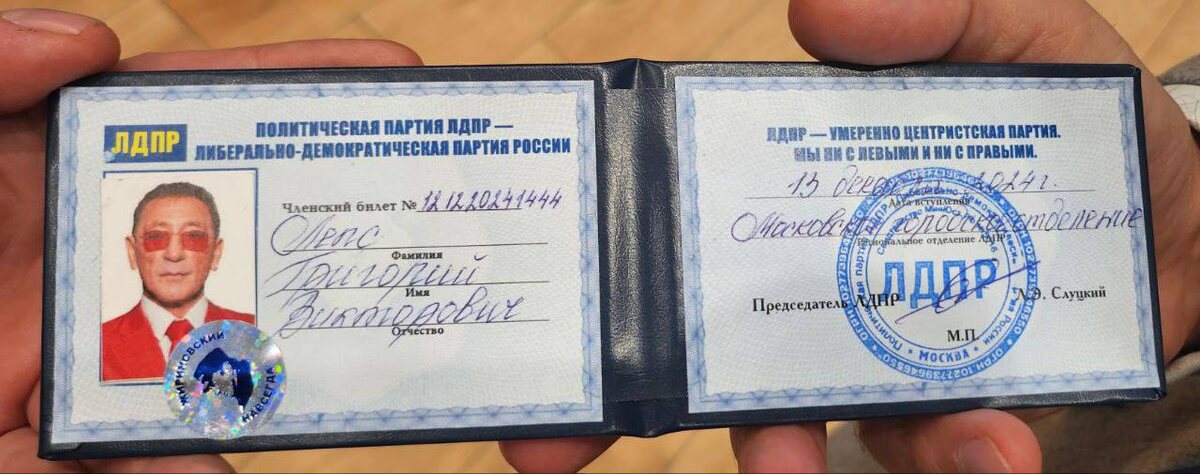 ЛДПР
ПОЛИТИЧЕСКАЯ ПАРТИЯ ЛДПР —
ЛИБЕРАЛЬНО-ДЕМОКРАТИЧЕСКАЯ ПАРТИЯ РОССИИ
Членский билет № 121220241444
Лепс
Фамилия
Григорий
Имя
Викторович
Отчество
ЖИРИНОВСКИЙ
НАВСЕГДА
ЛДПР — УМЕРЕННО ЦЕНТРИСТСКАЯ ПАРТИЯ.
МЫ НИ С ЛЕВЫМИ И НИ С ПРАВЫМИ.
13 2024г.
Дата вступления
Московское городское отделение
Региональное отделение ЛДПР
ЛДПР
Председатель ЛДПР Л.Э. Слуцкий
М.П.
МОСКВА
ОГРН 1027739646550